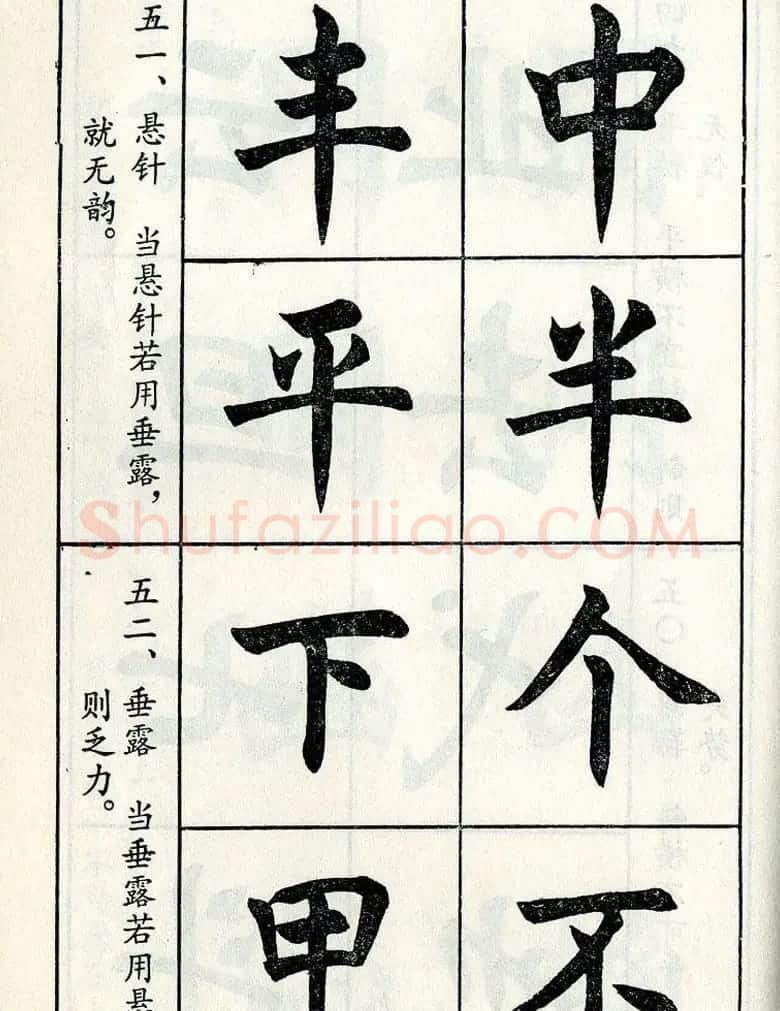 中半
丰平
五一、悬针 当悬针若用垂露，
就无韵。
个不
下甲
五二、垂露 当垂露若用悬
则乏力。
Shufaziliao.COM